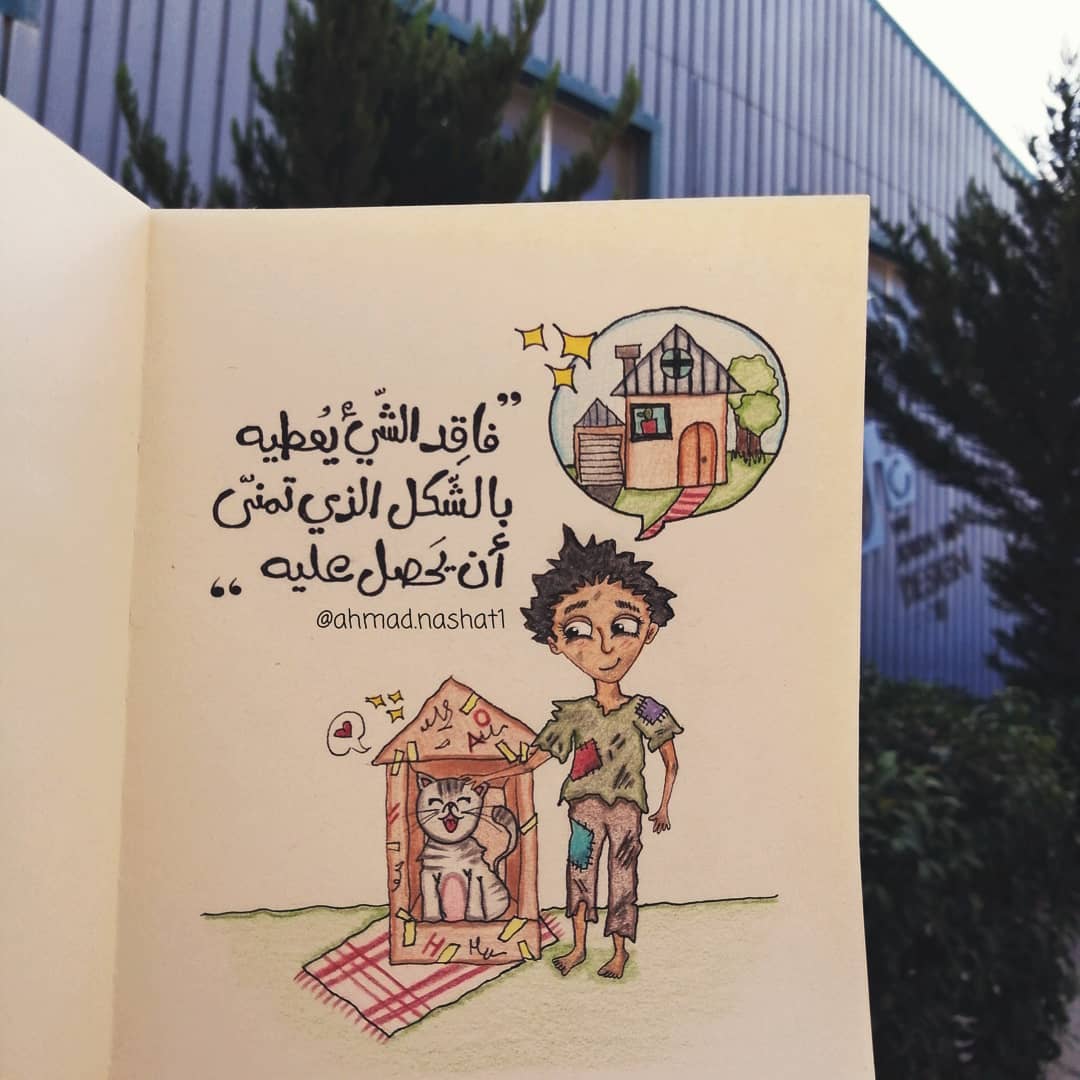 ”فاقِد الشّيْ يُعطيه
بالشّكل الذي تمنّى
أن يَحصل عليه“
@ahmad.nashat1
O
A
H
DESIGN